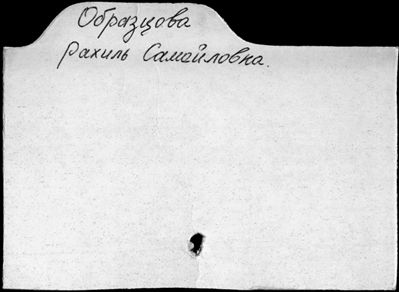 Образцова
Рахиль Самойловна.